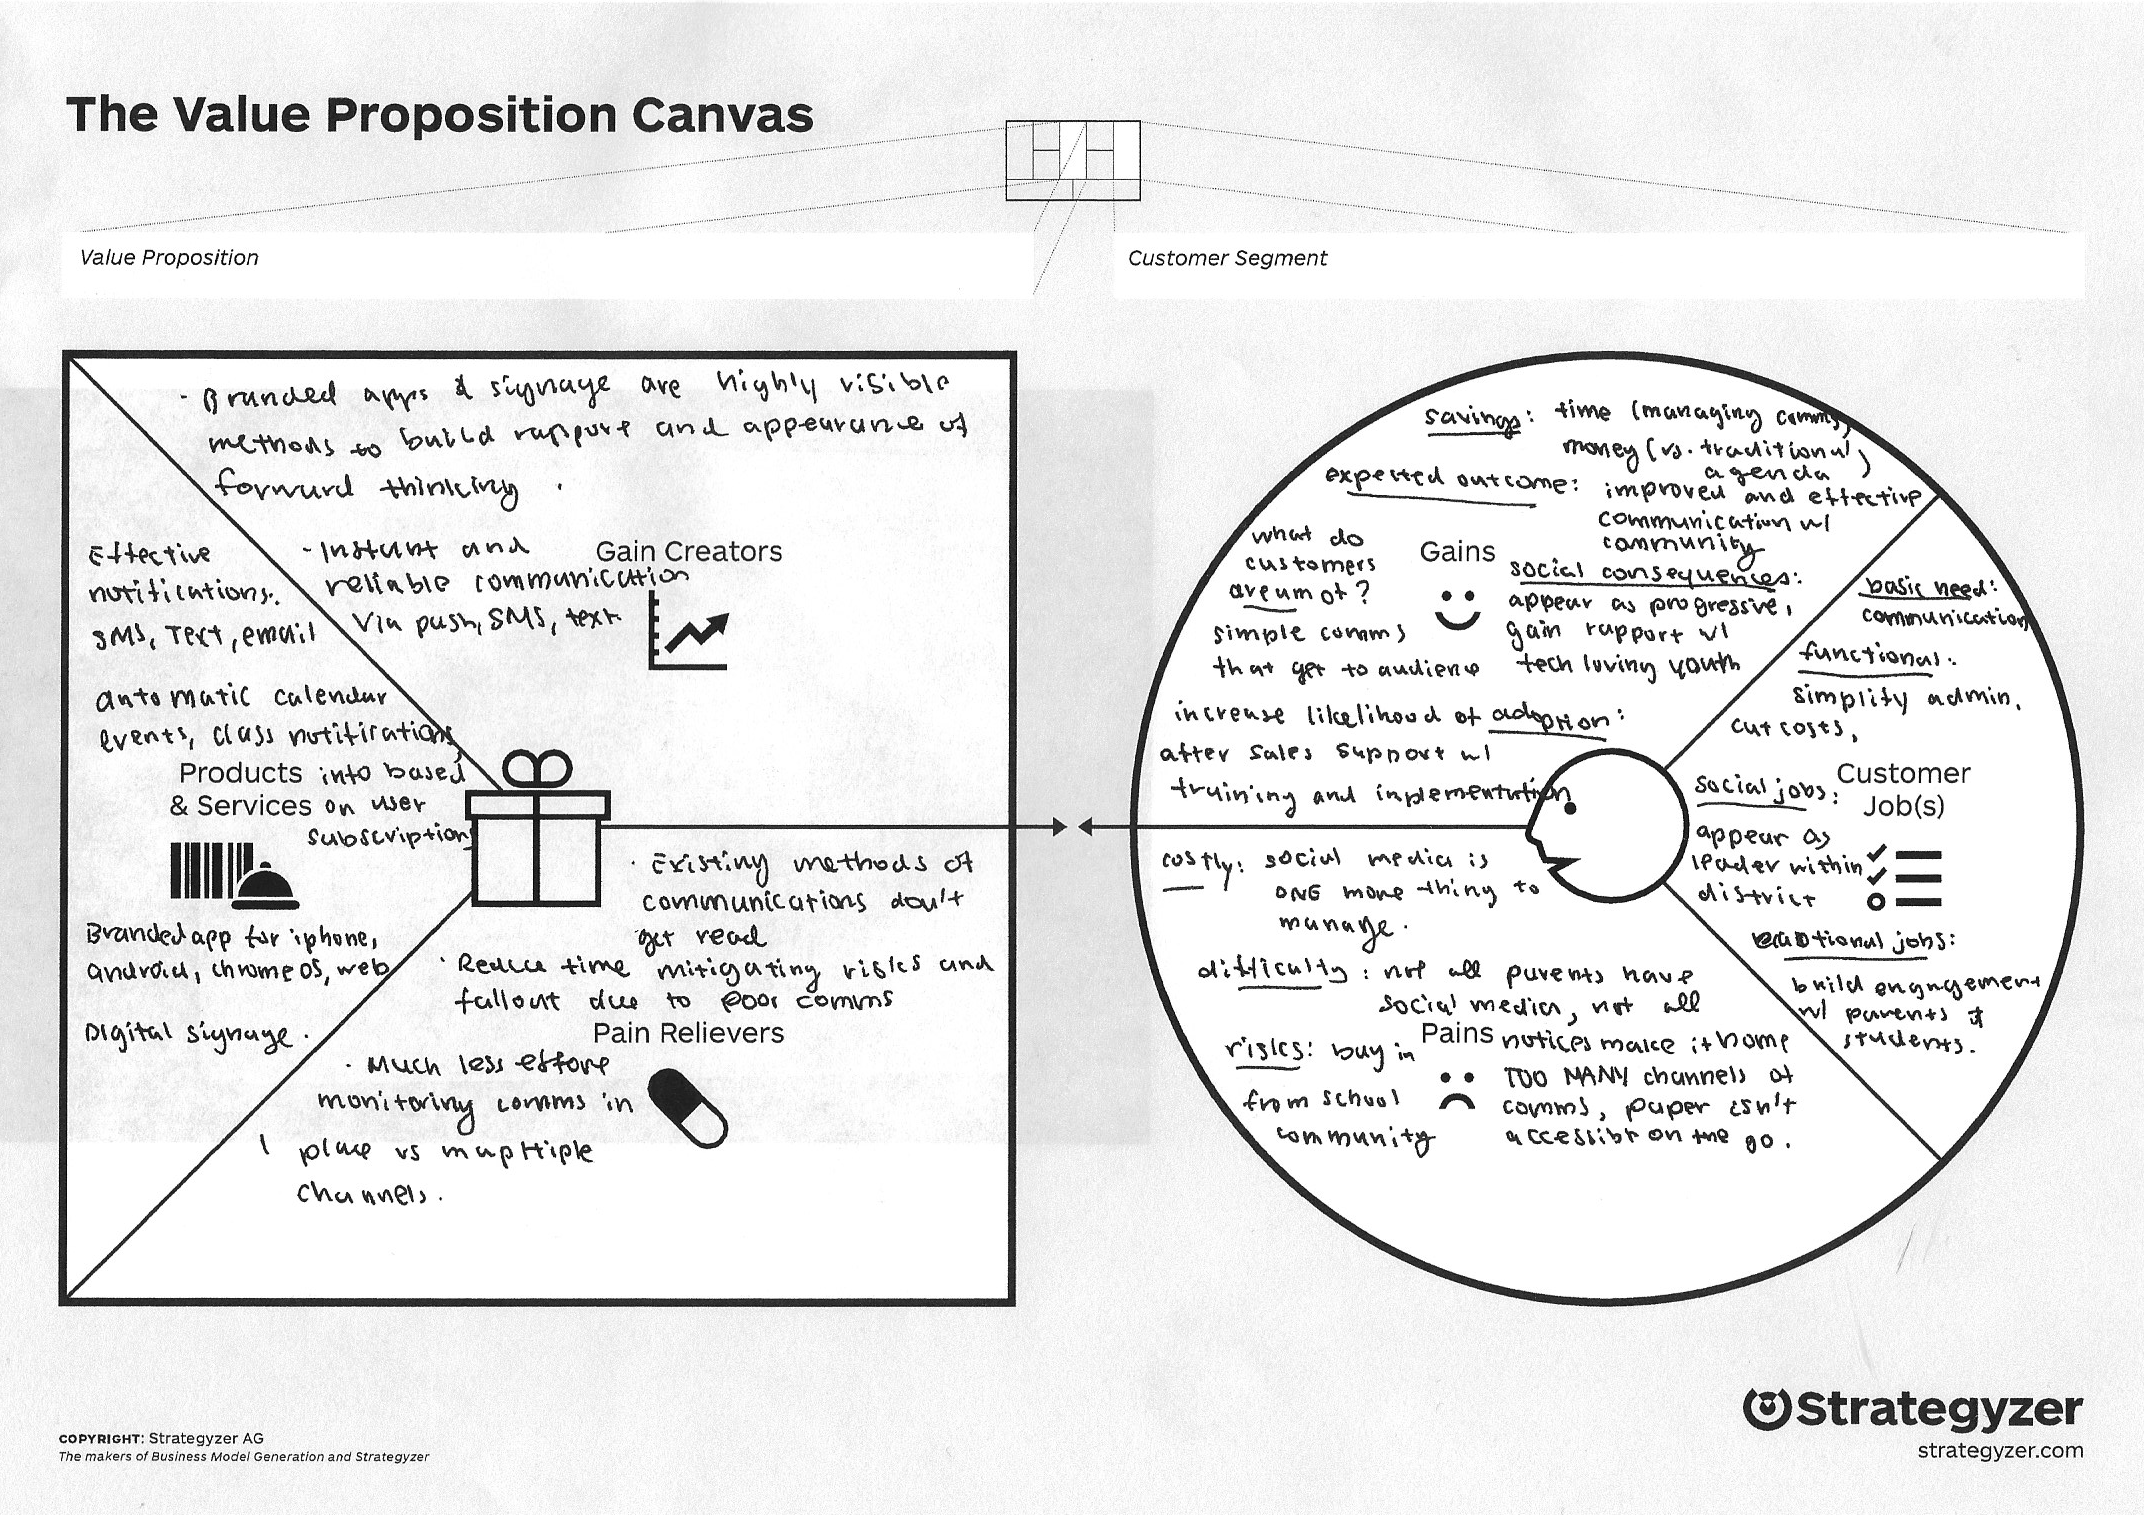 The Value Proposition Canvas
Value Proposition
Customer Segment
· Branded apps & signage are highly visible
methods to build rapport and appearance of
forward thinking .
- Instant and
reliable communication
via push, SMS, text
Gain Creators
Effective
notifications:
SMS, Text, email
automatic calendar
events, class notifications
Products into based
& Services on user
subscriptions
Branded app for iphone,
android, chrome OS, web
Digital signage .
· Existing methods of
communications don't
get read
· Reduce time mitigating risks and
fallout due to poor comms
Pain Relievers
· Much less effort
monitoring comms in
1 place vs
channels .
savings: time (managing comms,
money (vs. traditional)
agenda
expected outcome: improved and effective
communication w/
community
what do
customers
Gains
simple comms
that get to audience
social consequences:
appear as progressive,
gain rapport w/
tech loving youth
increase likelihood of adoption:
after sales support w/
training and implementation
basic need:
communication
functional:
simplify admin,
cut costs,
social jobs:
Customer
Job(s)
appear as
leader within
district
emotional jobs:
build engagement
w/ parents &
students.
costly: social media is
ONE more thing to
manage.
difficulty: not all parents have
social media, not all
Pains notices make it home
TOO MANY channels of
comms, paper isn't
on the go.
risks: buy in
from school
community
COPYRIGHT: Strategyzer AG
The makers of Business Model Generation and Strategyzer
Strategyzer
strategyzer.com